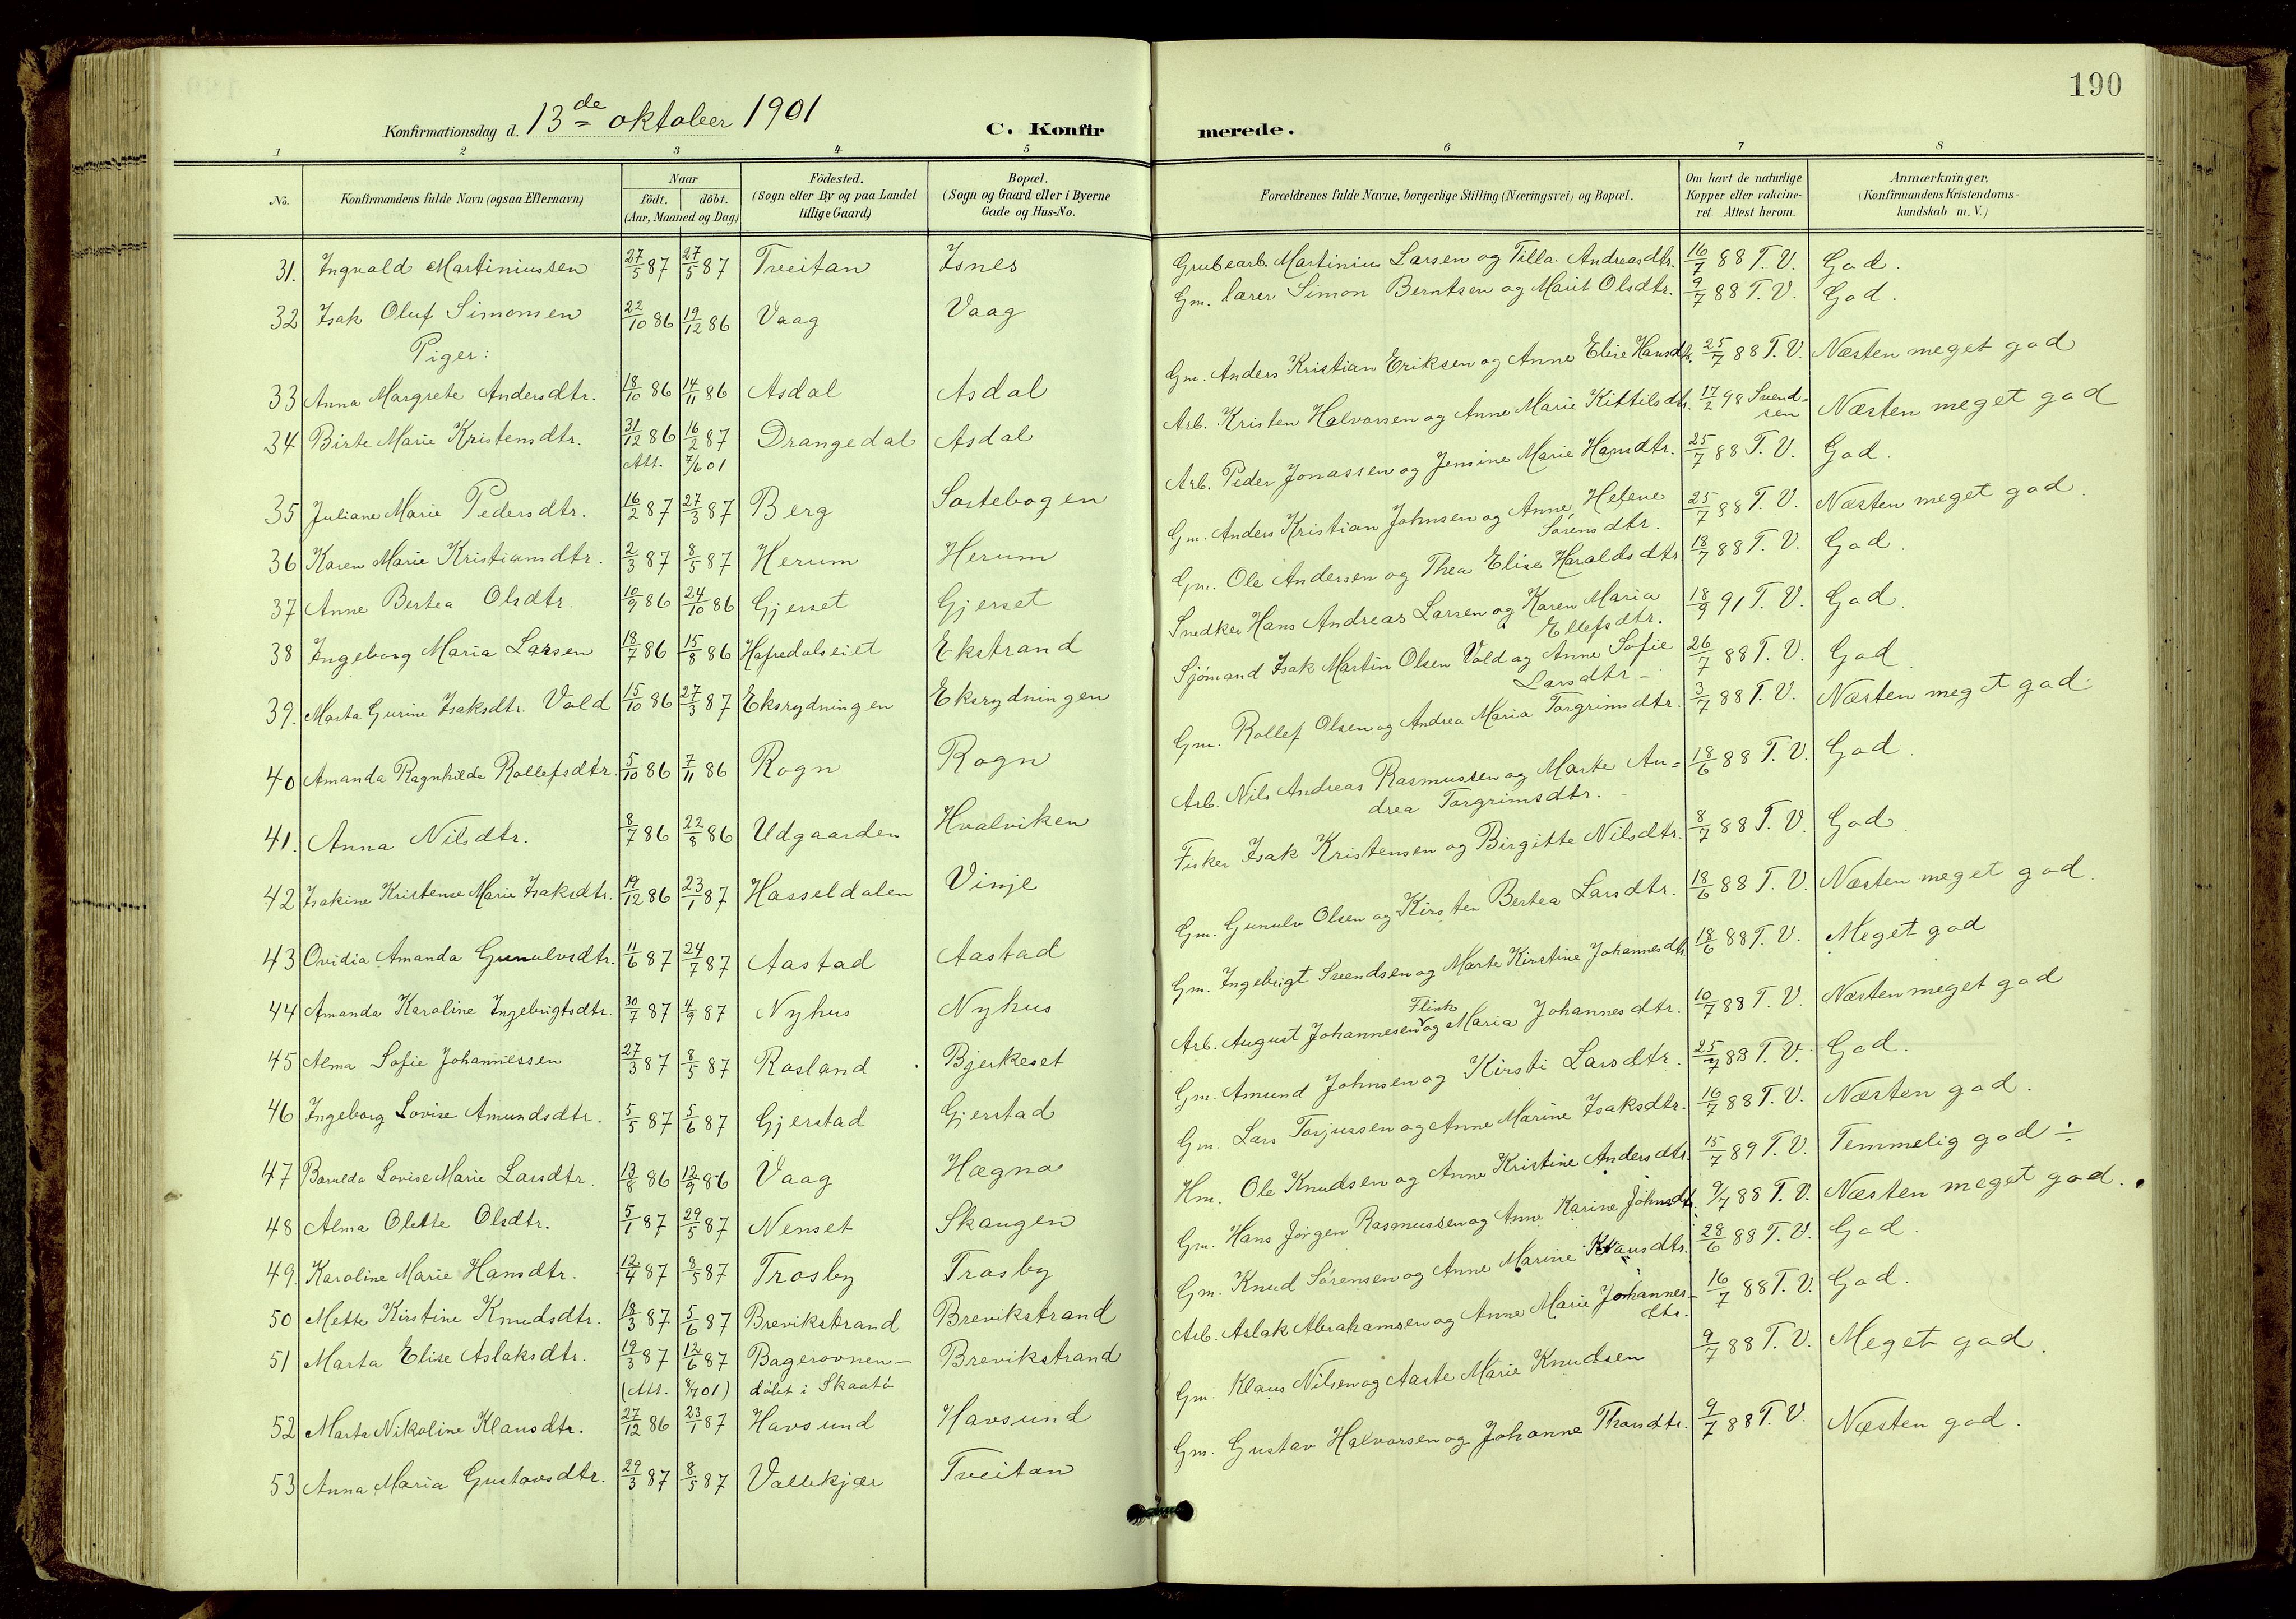 190
Konfirmationsdag d. 13de oktober 1901
C. Konfirmerede.
1 2 3 4 5 6 7 8
No. | Konfirmandens fulde Navn (ogsaa Efternavn) | Naar födt. döbt. (Aar, Maaned og Dag) | Födested. (Sogn eller By og paa Landet tillige Gaard) | Bopæl. (Sogn og Gaard eller i Byerne Gade og Hus-No. | Forældrenes fulde Navne, borgerlige Stilling (Næringsvei) og Bopæl. | Om havt de naturlige Kopper eller vakcineret. Attest herom. | Anmærkninger. (Konfirmandens Kristendomskundskab m. V.)
31. Ingvald Martiniussen 27/5 87 27/5 87 Tveitan Isnes Grubearb. Martinius Larsen og Tilla Andreasdtr. 16/7 88 T. V. God.
32 Isak Oluf Simonsen 22/10 86 19/12 86 Vaag Vaag Gm. lærer Simon Berntsen og Marit Olsdtr. 9/7 88 T. V. God.
Piger:
33 Anna Margrete Andersdtr. 18/10 86 14/11 86 Asdal Asdal Gm. Anders Kristian Eriksen og Anne Elise Hansdtr. 25/7 88 T. V. Næsten meget god
34 Birte Marie Kristensdtr. 31/12 86 16/2 87 Drangedal Asdal Arb. Kristen Halvorsen og Anne Marie Kittilsdtr. 17/2 98 Svendsen Næsten meget god
Att. 7/6 01
35 Juliane Marie Pedersdtr. 16/2 87 27/3 87 Berg Sortebogen Arb. Peder Jonassen og Jensine Marie Hansdtr. 25/7 88 T. V. God.
36 Karen Marie Kristiansdtr. 2/3 87 8/5 87 Herum Herum Gm. Anders Kristian Johnsen og Anne Helene Sørensdtr. 25/7 88 T. V. Næsten meget god.
37 Anne Bertea Olsdtr. 10/9 86 24/10 86 Gjerset Gjerset Gm. Ole Andersen og Thea Elise Haraldsdtr. 18/7 88 T. V. God.
38 Ingeborg Maria Larsen 18/7 86 15/8 86 Hafredalseiet Ekstrand Snedker Hans Andreas Larsen og Karen Maria Ellefsdtr. 18/9 91 T. V. God.
39. Marta Gurine Isaksdtr. Vold 15/10 86 27/3 87 Eksrydningen Eksrydningen Sjömand Isak Martin Olsen Vold og Anne Sofie Larsdtr – 26/7 88 T. V. God
40 Amanda Ragnhilda Rollefsdtr. 5/10 86 7/11 86 Rogn Rogn Gm. Rollef Olsen og Andrea Maria Torgrimsdtr. 3/7 88 T. V. Næsten meget god
41. Anna Nilsdtr. 8/7 86 22/8 86 Udgaarden Hvalviken Arb. Nils Andreas Rasmussen og Marte Andrea Torgrimsdtr. 18/6 88 T. V. God.
42 Isakine Kristense Marie Isaksdtr. 19/12 86 23/1 87 Hasseldalen Vinje Fisker Isak Kristensen og Birgitte Nilsdtr. 8/7 88 T. V. God
43 Ovidia Amanda Gunulvsdtr. 11/6 87 24/7 87 Aastad Aastad Gm. Gunulv Olsen og Kirsten Bertea Larsdtr. 18/6 88 T. V. Næsten meget god.
44 Amanda Karoline Ingebrigtsdtr. 30/7 87 4/9 87 Nyhus Nyhus Gm. Ingebrigt Svendsen og Marte Kirstine Johannesdtr. 18/6 88 T. V. Meget god
45 Alma Sofie Johannessen 27/3 87 8/5 87 Rosland Bjerkeset Arb. August Johannesen Flink og Maria Johannesdtr. 10/7 88 T. V. Næsten meget god
46 Ingeborg Lovise Amundsdtr. 5/5 87 5/6 87 Gjerstad Gjerstad Gm. Amund Johnsen og Kirsti Larsdtr. 25/7 88 T. V. God.
47 Lovise Marie Larsdtr. 13/8 86 12/9 86 Vaag Hægna Gm. Lars Torjussen og Anne Marine Isaksdtr. 16/7 88 T. V. Næsten god.
48 Alma Olette Olsdtr. 5/1 87 29/5 87 Nenset Skaugen Hm. Ole Knudsen og Anne Kristine Andersdtr. 15/7 89 T. V. Temmelig god ÷
49. Karoline Marie Hansdtr. 12/4 87 8/5 87 Trosby Trosby Gm. Hans Jörgen Rasmussen og Anne Karine Johnsdtr. 9/7 88 T. V. Næsten meget god.
50 Mette Kirstine Knudsdtr. 18/3 87 5/6 87 Brevikstrand Brevikstrand Gm. Knud Sörensen og Anne Marine Klausdtr. 28/6 88 T. V. God.
51 Marta Elise Aslaksdtr. 19/3 87 12/6 87 Bagerovnen – Brevikstrand Arb. Aslak Abrahamsen og Anne Marie Johannesdtr. 16/7 88 T. V. God.
(Att. 8/7 01) döbt i Skaatö
52 Marta Nikoline Klausdtr. 27/12 86 23/1 87 Havsund Havsund Gm. Klaus Nilsen og Aaste Marie Knudsen 9/7 88 T. V. Meget god.
53 Anna Maria Gustavsdtr. 29/3 87 8/5 87 Vallekjær Tveitan Gm. Gustav Halvorsen og Johanne Thorsdtr. 9/7 88 T. V. Næsten god.